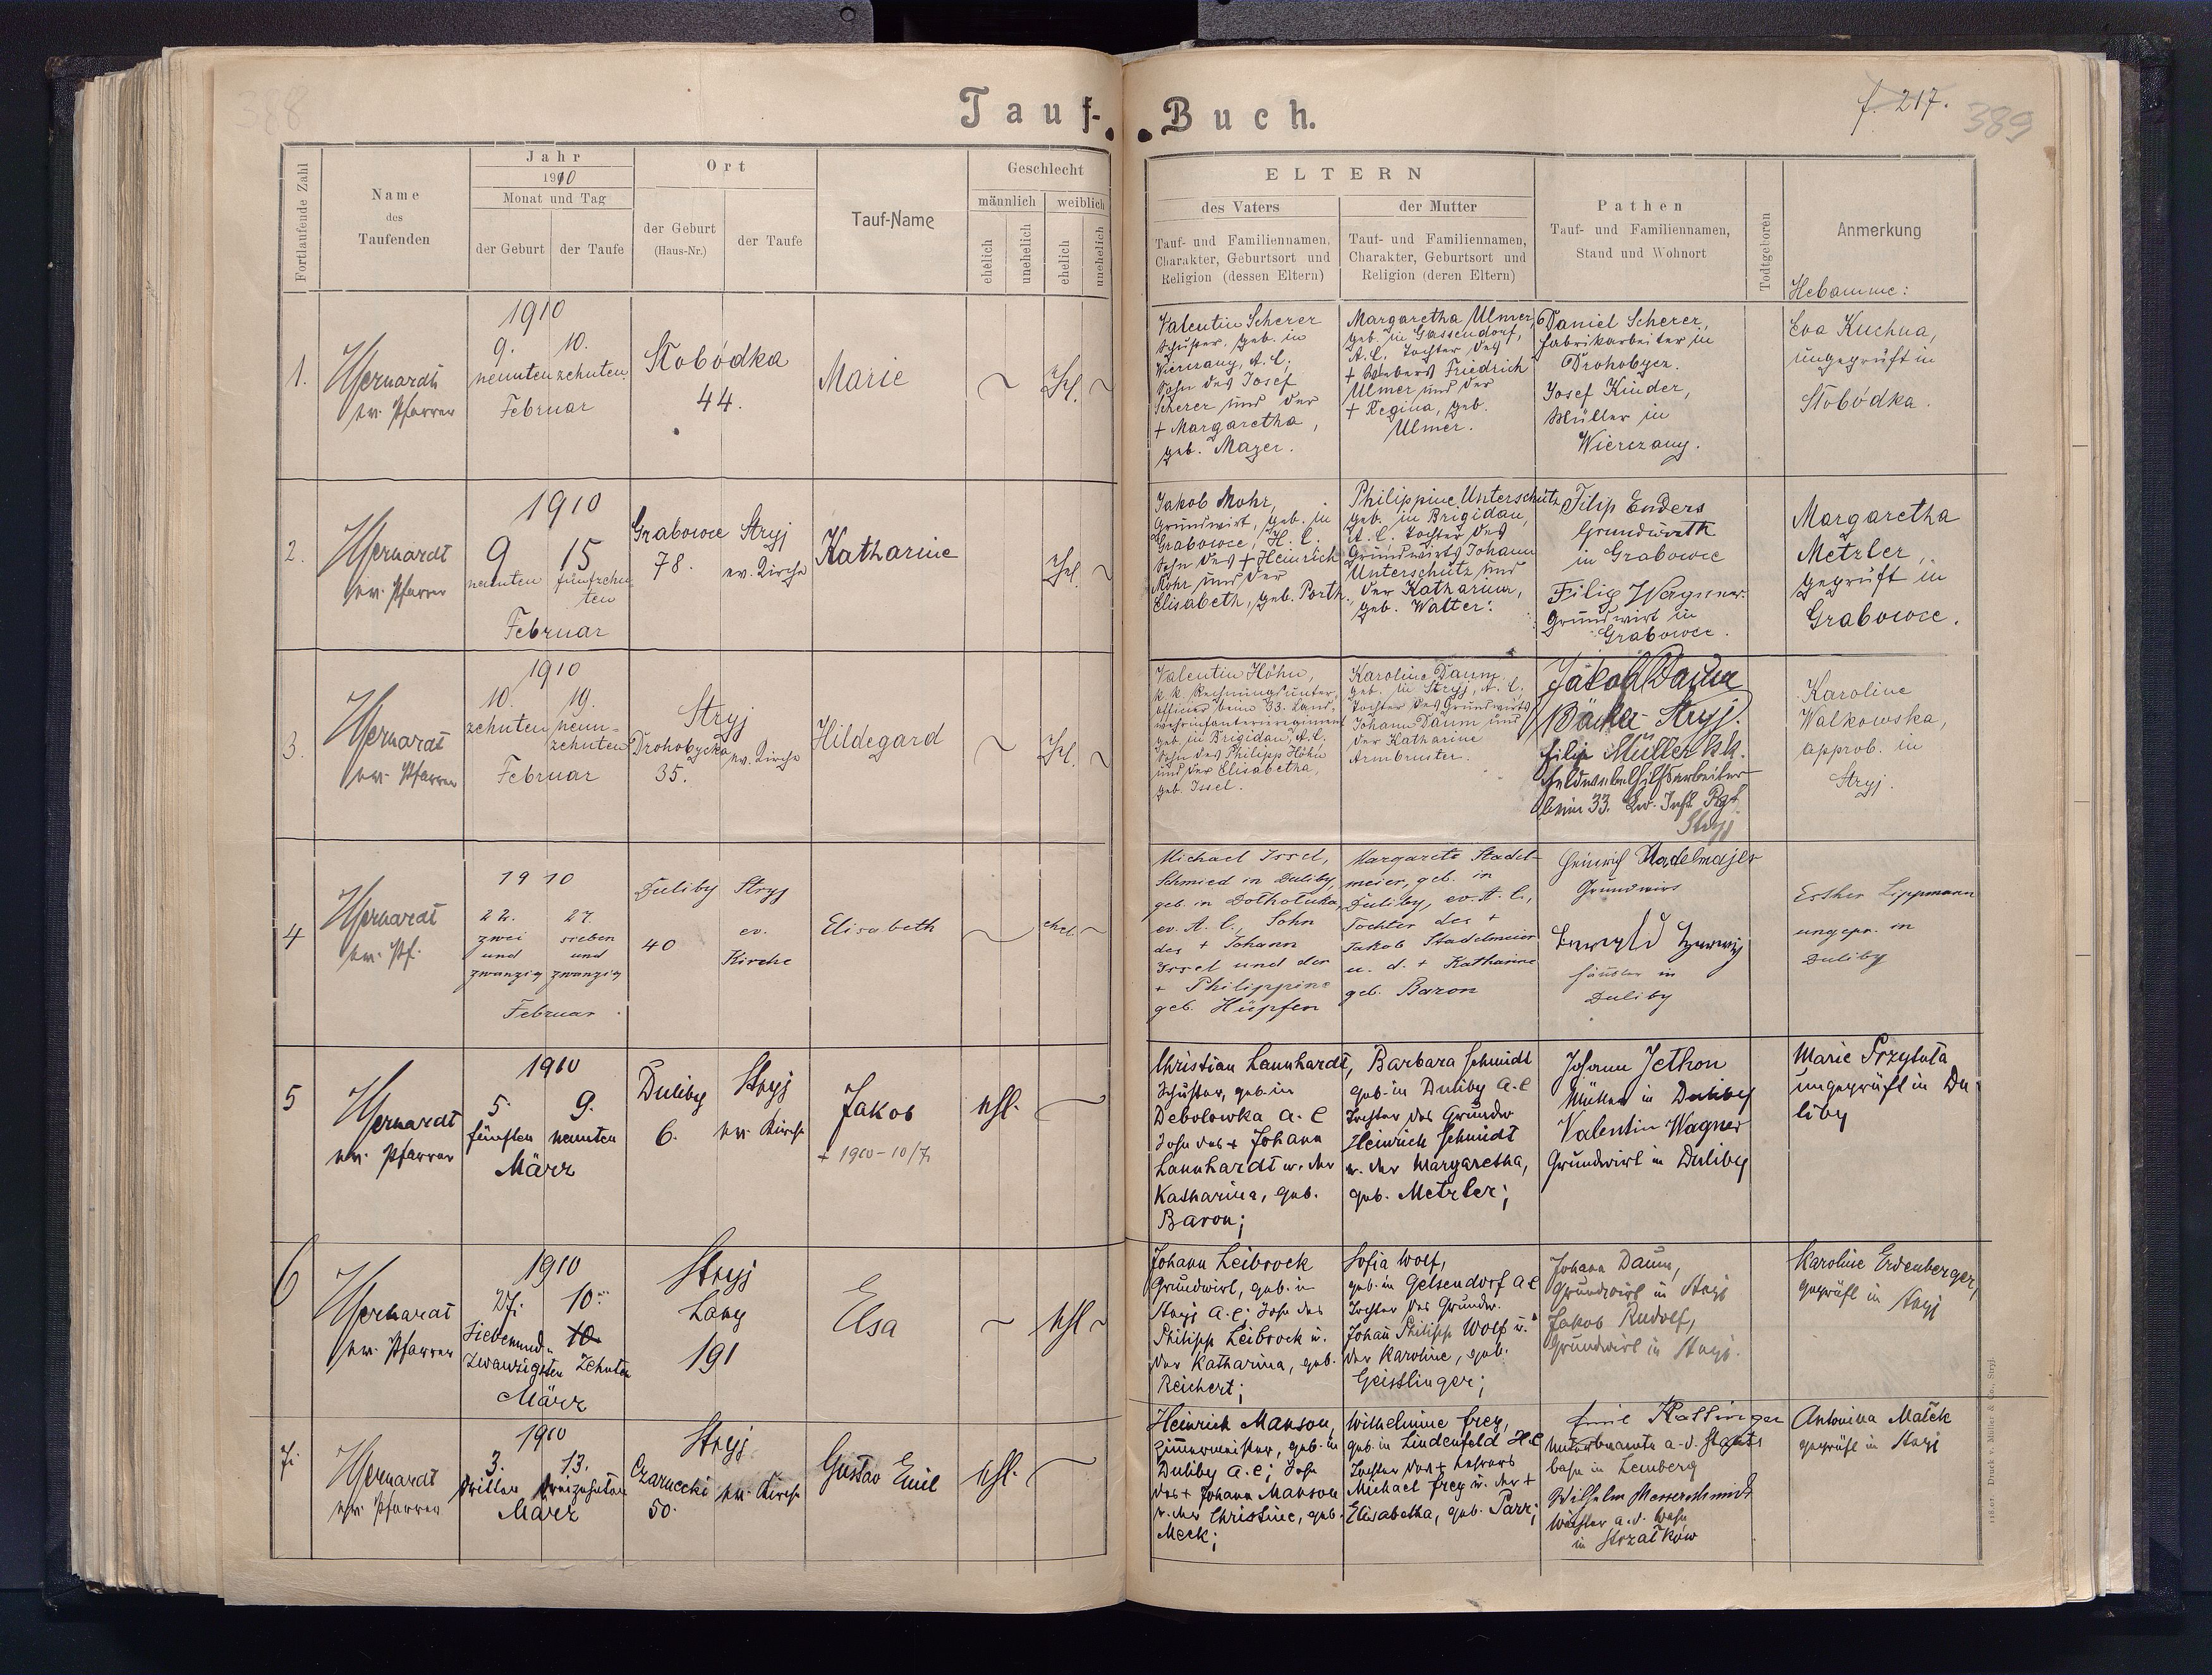 388
Tauf-
Buch.
f. 217.
389
Fortlaufende Zahl
Name
des
Taufenden
Jahr
1910
Monat und Tag
der Geburt
der Taufe
Ort
der Geburt
(Haus-Nr.)
der Taufe
Tauf-Name
Geschlecht
männlich
weiblich
ehelich
unehelich
ehelich
unehelich
ELTERN
des Vaters
Tauf- und Familiennamen,
Charakter, Geburtsort und
Religion (dessen Eltern)
der Mutter
Tauf- und Familiennamen,
Charakter, Geburtsort und
Religion (deren Eltern)
Pathen
Tauf- und Familiennamen,
Stand und Wohnort
Todtgeboren
Anmerkung
Hebamme:
1.
ev. Pfarrer
1910
9. 10.
neunten zehnten
Februar
Słobódka
44.
Marie
Ehel.
Valentin Scherer
Schuster, geb. in
Wierczany, A. C.,
Sohn des Josef
Scherer und der
+ Margaretha,
geb. Mazer.
Margaretha Ulmer,
geb. in Gassendorf,
A. C. Tochter des
+ Webers Friedrich
Ulmer und der
+ Regina, geb.
Ulmer.
Daniel Scherer,
Fabrikarbeiter in
Drohobycz.
Josef Kinder,
Müller in
Wierczany.
Eva Kuchna,
ungeprüft in
Słobódka.
2.
ev. Pfarrer
1910
9 15
neunten fünfzehn
ten
Februar
Grabowce
78.
Stryj
ev. Kirche
Katharine
Ehel.
Jakob Mohr,
Grundwirt, geb. in
Grabowce, H. C.
Sohn des + Heinrich
Mohr und der
Elisabeth, geb. Porth.
Philippine Unterschütz
geb. in Brigidau,
A. C. Tochter des
Grundwirts Johann
Unterschütz und
der Katharina,
geb. Walter.
Filip Enders
Grundwirth
in Grabowce
Filip Wagner.
Grundwirt in
Grabowce.
Margaretha
Metzler,
geprüft in
Grabowce.
3.
ev. Pfarrer
1910
10. 19.
zehnten neun-
zehnten
Februar
Stryj
Drohobycka
35.
ev. Kirche
Hildegard
Ehel.
Valentin Höhn,
k. k. Rechnungsunter-
officier beim 33. Land-
wehrinfanterieregiment
geb. in Brigidau, A. C.
Sohn des Philipp Höhn
und der Elisabetha,
geb. Issel.
Karoline Daum
geb. in Stryj, A. C.
Tochter des Grundwirts
Johann Daum und
der Katharine
Armbruster.
Jakob Daum
Bäcker Stryj.
Filip Müller k.k.
beim 33. Lw. Inft. Rgt.
Stryj
Karoline
Walkowska,
approb. in
Stryj.
4
ev. Pf.
1910
22. 27.
zwei sieben
und und
zwanzig zwanzig
Februar
Duliby
40
Stryj
ev.
Kirche
Elisabeth
ehel.
Michael Issel,
Schmied in Duliby,
geb. in Dołhołuka,
ev. A. C., Sohn
des + Johann
Issel und der
+ Philippine
geb. Hüpfen
Margarete Stadel-
meier, geb. in
Duliby, ev. A. C.,
Tochter des +
Jakob Stadelmeier
u. d. + Katharine
geb. Baron
Heinrich Stadelmajer
Grundwirt
in
Duliby
Esther Lippmann
ungepr. in
Duliby
5
ev. Pfarrer
1910
5. 9.
fünften neunten
März
Duliby
6.
Stryj
ev. Kirche
Jakob
+ 1910-10/7.
ehl.
Christian Lannhardt,
Schuster, geb. in
Debolowka A. C
Sohn des + Johann
Lannhardt u. der
Katharina, geb.
Baron;
Barbara Schmidt
geb. in Duliby A. C
Tochter des Grundw
Heinrich Schmidt
u. der Margaretha,
geb. Metzler;
Johann Jethon
Müller in Duliby
Valentin Wagner
Grundwirt in Duliby
Marie Przytuła
ungeprüft in Du
liby
6
ev. Pfarrer
1910
27. 10.
Siebenund- 10
zwanzigsten Zehnten
März
Stryj
Łany
191
Elsa
ehl
Johann Leibrock
Grundwirt, geb. in
Stryj A. C; Sohn des
Philipp Leibrock u.
der Katharina, geb.
Reichert;
Sofia Wolf,
geb. in Gelsendorf A C
Tochter des Grundw.
Johan Philipp Wolf u.
der Karoline, geb.
Geisslinger;
Johann Daum,
Grundwirt in Stryj
Jakob Rudolf,
Grundwirt in Stryj.
Karoline Erdenberger,
geprüft in Stryj
7.
ev. Pfarrer
1910
3. 13.
Dritten Dreizehnten
März
Stryj
Czarnecki
50.
ev. Kirche
Gustav Emil
ehl.
Heinrich Manson,
Zimmermeister, geb. in
Duliby A. C; Sohn
des + Johann Manson
u. der Christine, geb.
Meck;
Wilhelmine Frey,
geb. in Lindenfeld H. C
Tochter des + Lehrers
Michael Frey u. der +
Elisabetha, geb. Parr;
Emil
Unterbeamte a. d. Staats
bahn in Lemberg
Wilhelm Messerschmidt
Wächter a. d. Bahn
in Strzałków
Antonina Małek
geprüft in Stryj
118.07 Druck v. Müller & Co., Stryj.